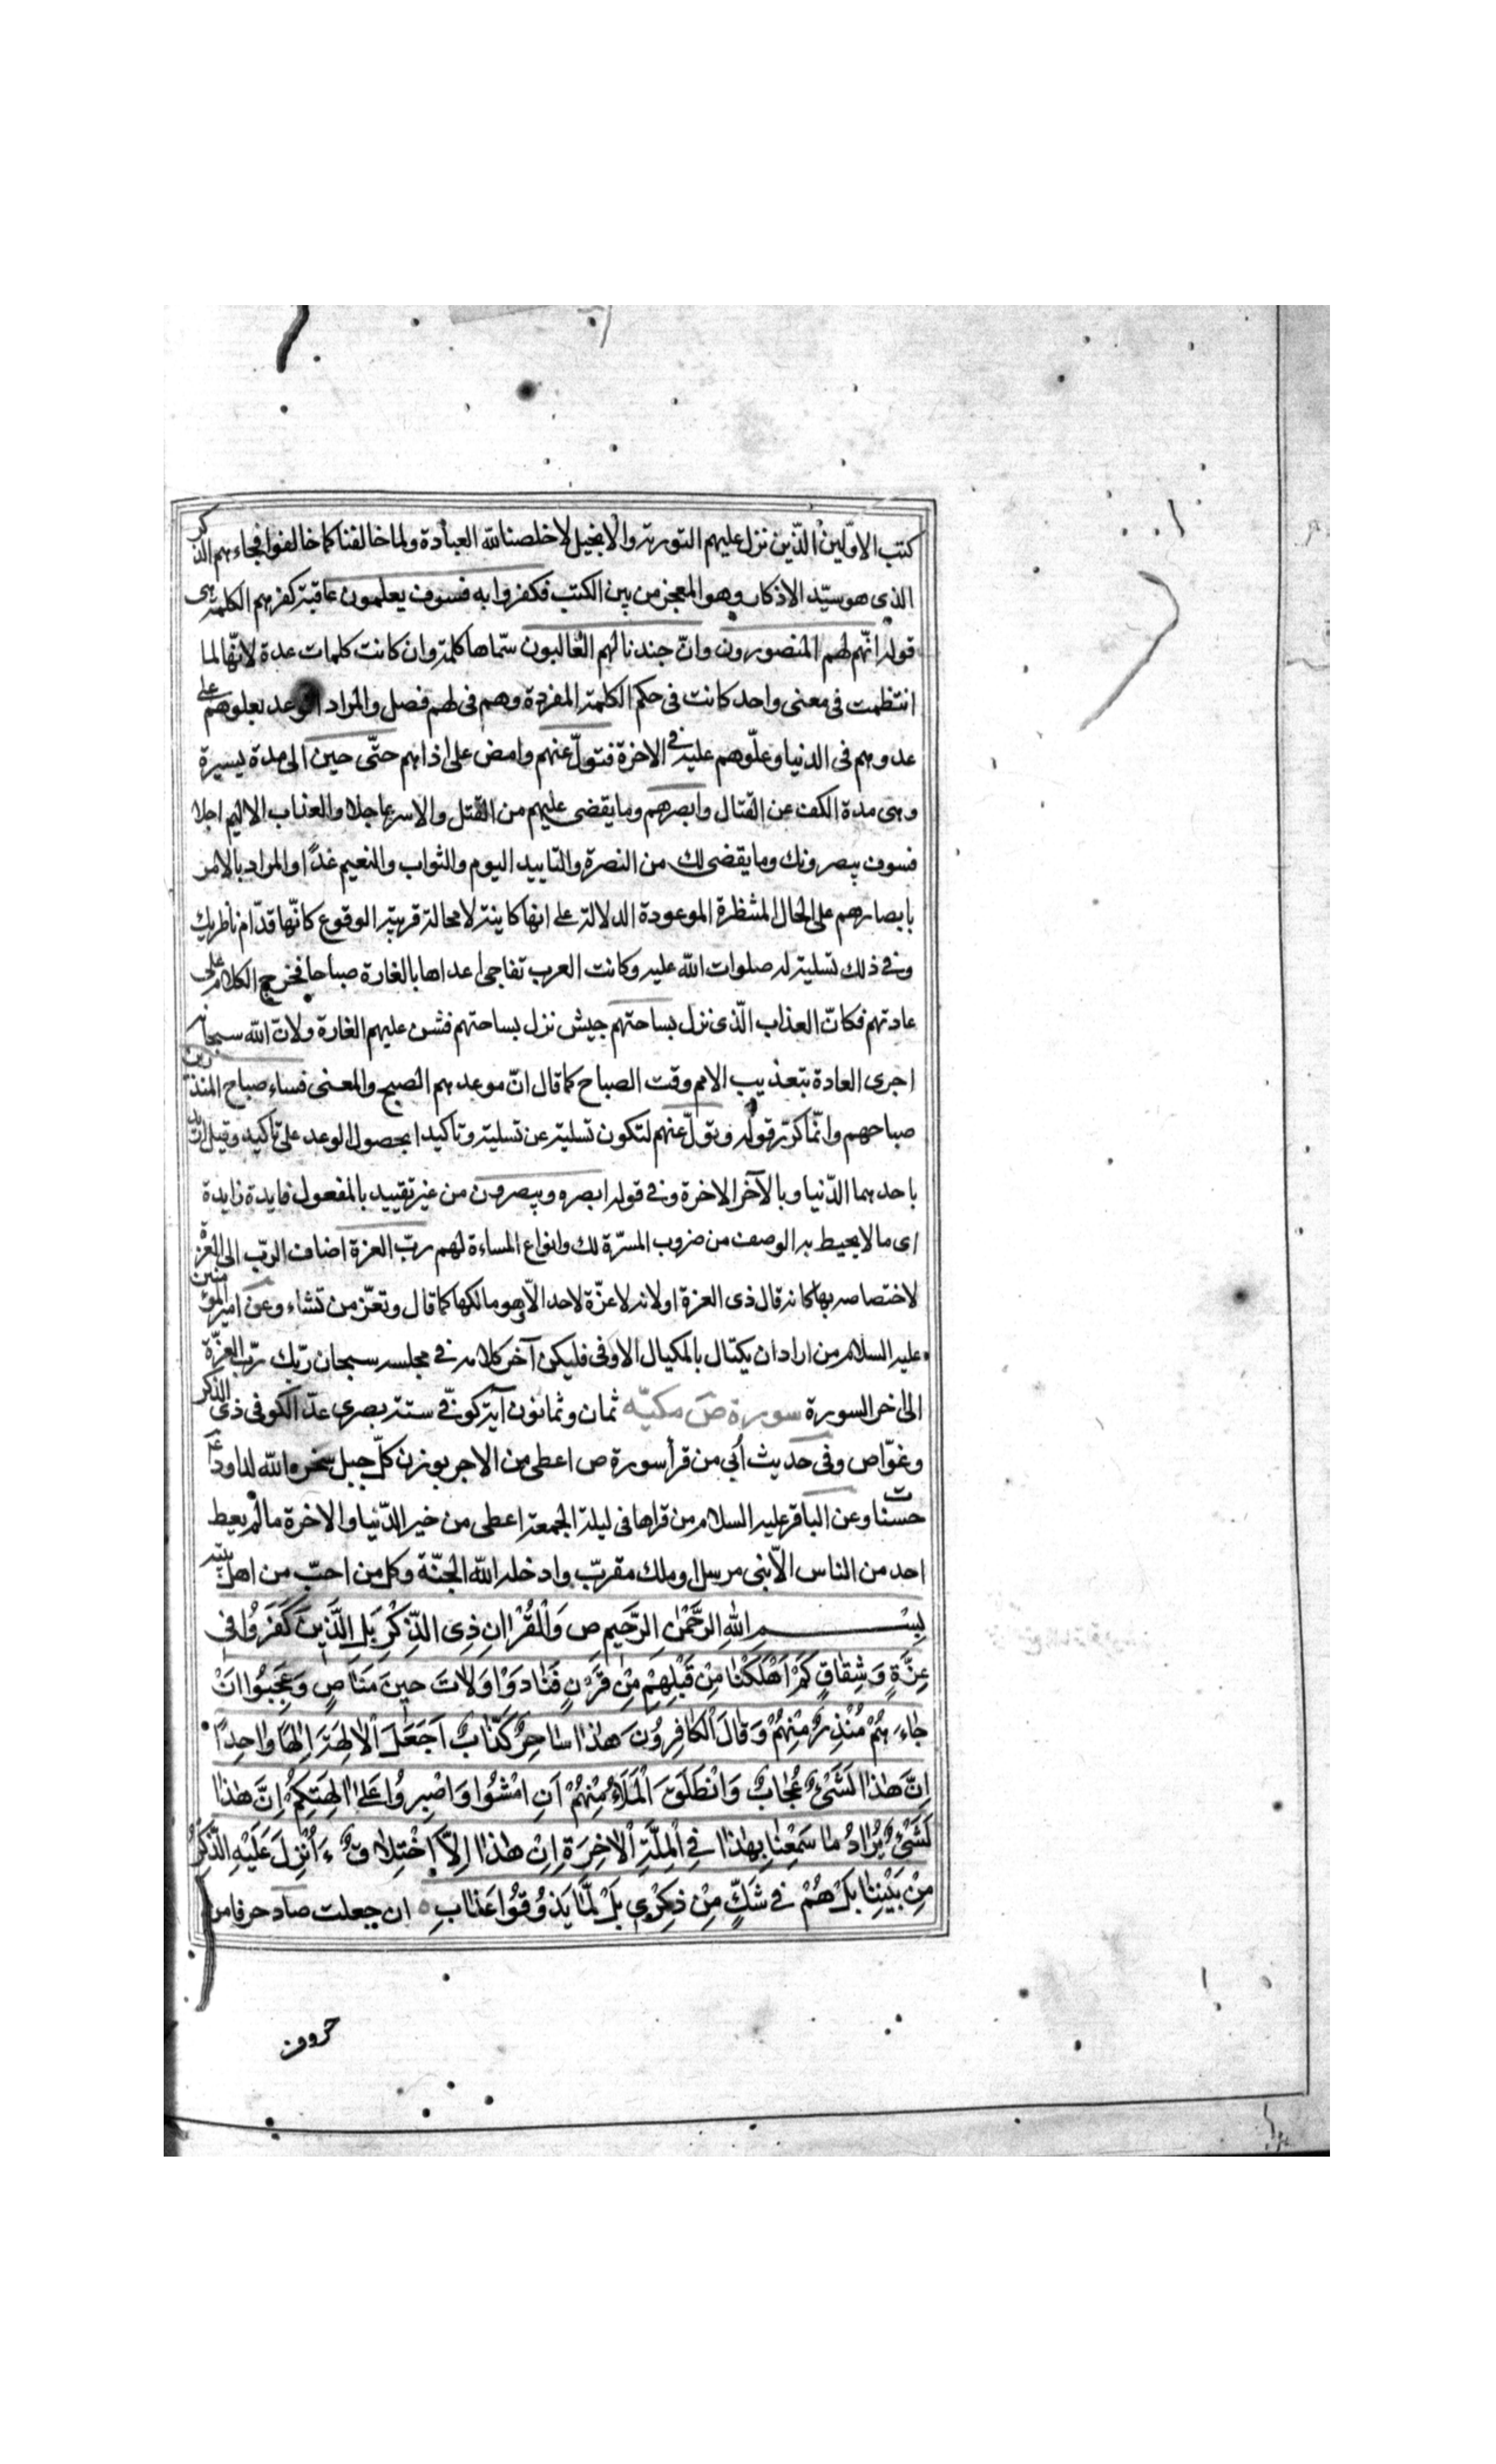 كتب الاوّلين الّذين نزل عليهم التورية والانجيل لاخلصنا لله العبادة ولما خالفنا كما خالفوا فجاءهم الذكر
الذى هو سيّد الاذكار وهو المعجز من بين الكتب فكفروا به فسوف يعلمون عاقبة كفرهم الكلمة هى
قوله انّهم لهم المنصورون وانّ جندنا لهم الغالبون سمّاها كلمة وان كانت كلمات عدة لانّها لما
انتظمت فى معنى واحد كانت فى حكم الكلمة المفردة وهم فى لهم فصل والمراد الوعد بعلوهم على
عدوهم فى الدنيا وعلّوهم عليه فى الاخرة فتولّ عنهم وامض على اذاهم حتّى حين الى مدة يسيرة
وهى مدة الكف عن القتال وابصرهم وما يقضى عليهم من القتل والاسر عاجلا والعذاب الاليم اجلا
فسوف يبصرونك وما يقضى لك من النصرة والتاييد اليوم والثواب والنعيم غدًا والمراد بالامر
بابصارهم على الحال المنتظرة الموعودة الدلالة على انها كاينة لا محالة قريبة الوقوع كانّها قدّام ناظريك
وفى ذلك تسلية له صلوات الله عليه وكانت العرب تفاجئ اعداها بالغارة صباحا فخرج الكلام على
عادتهم فكانّ العذاب الّذى نزل بساحتهم جيش نزل بساحتهم فشن عليهم الغارة ولانّ الله سبحانه
اجرى العادة بتعذيب الامم وقت الصباح كما قال انّ موعدهم الصبح والمعنى فساء صباح المنذرين
صباحهم وانّما كرّر قوله وتولّ عنهم لتكون تسلية عن تسلية وتاكيدا بحصول الوعد على تاكيد وقيل اريد
باحدهما الدّنيا وبالآخر الاخرة وفى قوله ابصر ويبصرون من غير تقييد بالمفعول فايدة زايدة
اى ما لا يحيط به الوصف من ضروب المسرّة لك وانواع المساءة لهم ربّ العزة اضاف الربّ الى العزة
لاختصاصه بها كانه قال ذى العزة او لانه لا عزّة لاحد الّا وهو مالكها كما قال وتعزّ من تشاء وعن امير المؤمنين
عليه السلام من اراد ان يكتال بالمكيال الاوفى فليكن آخر كلامه فى مجلسه سبحان ربّك ربّ العزّة
الى اخر السورة سورة ص مكيّه ثمان وثمانون آية كوفّى ستة بصرى عدّ الكوفى ذى الذكر
وغوّاص وفى حديث اُبى من قرأ سورة ص اعطى من الاجر بوزن كلّ جبل سخره الله لداود ع
حسنات وعن الباقر عليه السلام من قراها فى ليلة الجمعة اعطى من خير الدّنيا والاخرة ما لم يعط
احد من الناس الّا نبى مرسل او ملك مقرّب وادخله الله الجنّة وكل من احبّ من اهل بيته
بِسْمِ اللهِ الرَّحْمٰنِ الرَّحيمِ صٓ وَالْقُرْاٰنِ ذِى الذِّكْرِ بَلِ الَّذينَ كَفَرُوا فى
عِزَّةٍ وَشِقاقٍ كَمْ اَهْلَكْنا مِنْ قَبْلِهِمْ مِنْ قَرْنٍ فَنادَوْا وَلاتَ حينَ مَناصٍ وَعَجِبُوا اَنْ
جاءَهُمْ مُنْذِرٌ مِنْهُمْ وَقالَ الْكافِرُونَ هٰذا ساحِرٌ كَذّابٌ اَجَعَلَ الْاٰلِهَةَ اِلٰهًا واحِدًا
اِنَّ هٰذا لَشَىْءٌ عُجابٌ وَانْطَلَقَ الْمَلَأُ مِنْهُمْ اَنِ امْشُوا وَاصْبِرُوا عَلىٰ اٰلِهَتِكُمْ اِنَّ هٰذا
لَشَىْءٌ يُرادُ ما سَمِعْنا بِهٰذا فِى الْمِلَّةِ الْاٰخِرَةِ اِنْ هٰذا اِلَّا اخْتِلاقٌ ءَاُنْزِلَ عَلَيْهِ الذِّكْرُ
مِنْ بَيْنِنا بَلْ هُمْ فى شَكٍّ مِنْ ذِكْرى بَلْ لَمّا يَذُوقُوا عَذابِ ان جعلت صاد حرفا من
حروف